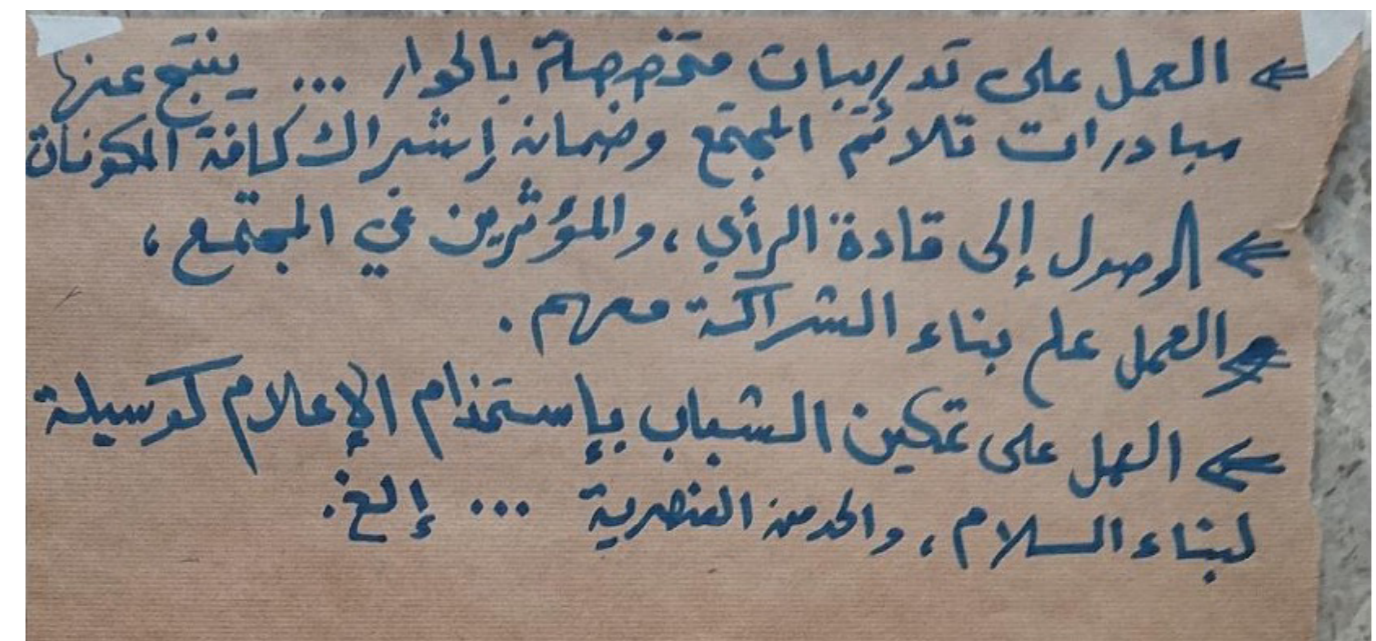 ⇐ العمل على تدريبات متخصصة بالحوار ... ينتج عنها
مبادرات تلائم المجتمع وضمان إشراك كافة المكونات
⇐ الوصول إلى قادة الرأي، والمؤثرين في المجتمع،
والعمل على بناء الشراكة معهم.
⇐ العمل على تمكين الشباب بإستخدام الإعلام كوسيلة
لبناء السلام، والحد من العنصرية ... إلخ.